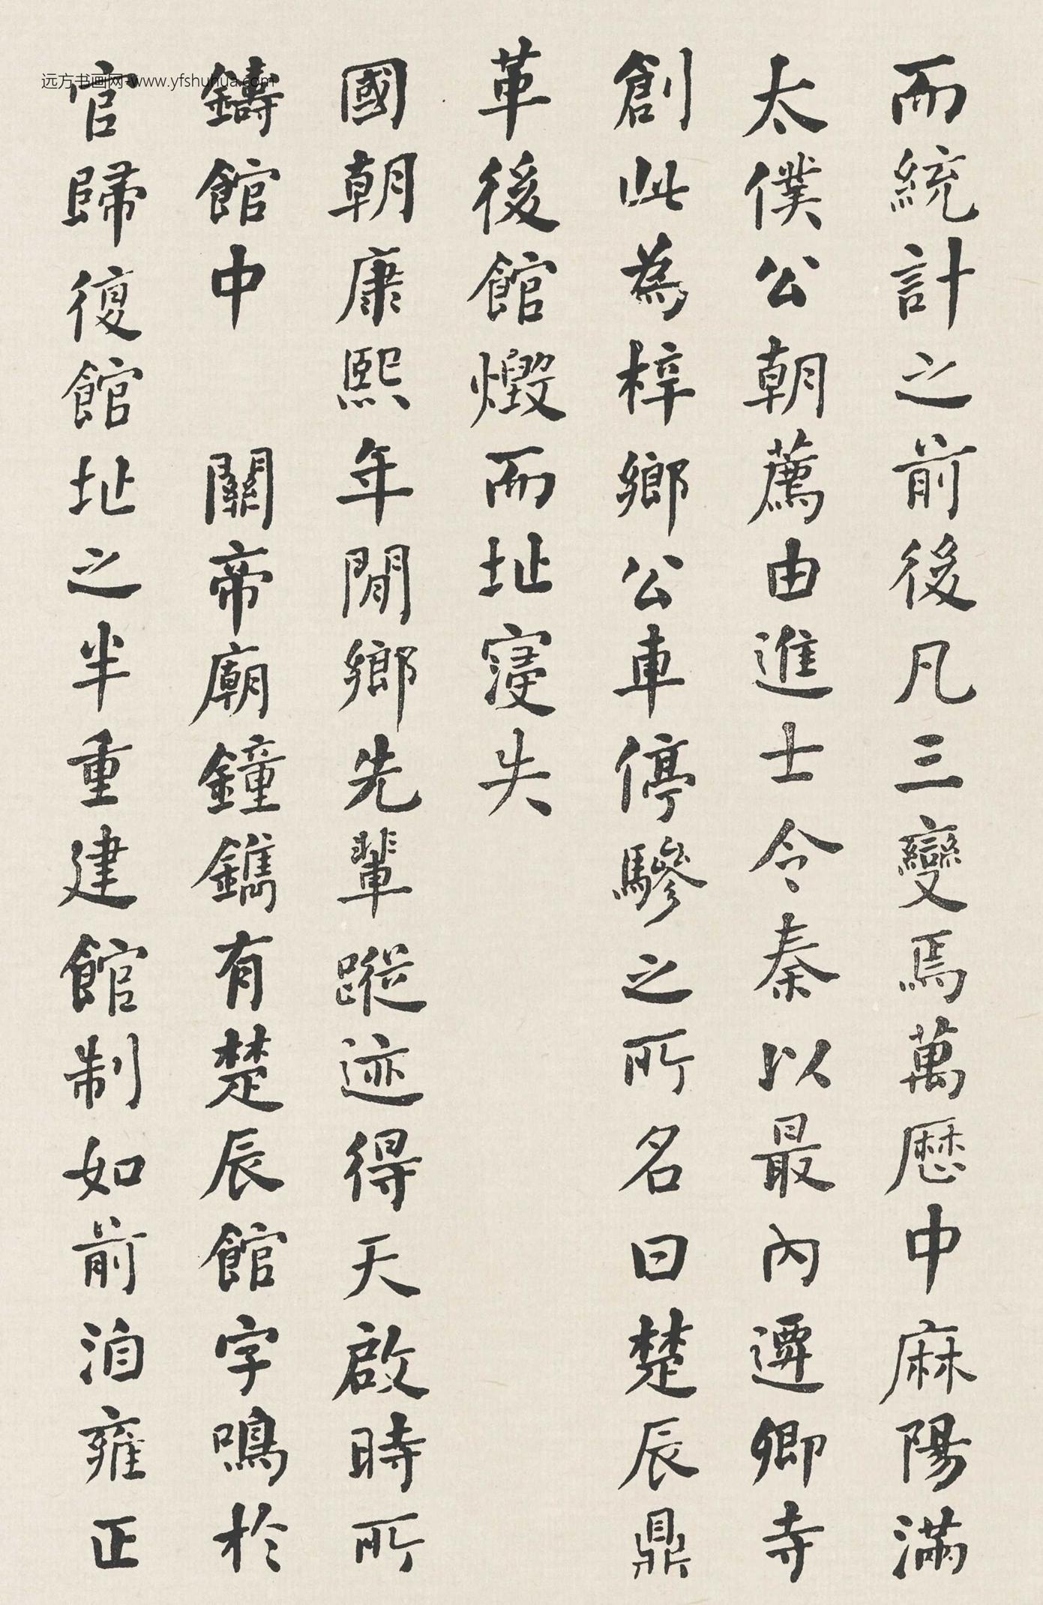 而統計之前後凡三變焉萬歷中麻陽滿
太僕公朝薦由進士令秦以最內遷卿寺
創此為梓鄉公車停驂之所名曰楚辰鼎
革後館燬而址寖失
國朝康熙年間鄉先輩蹤迹得天啟時所
鑄館中 關帝廟鐘鐫有楚辰館字鳴於
官歸復館址之半重建館制如前洎雍正
远方书画网-www.yfshuhua.com